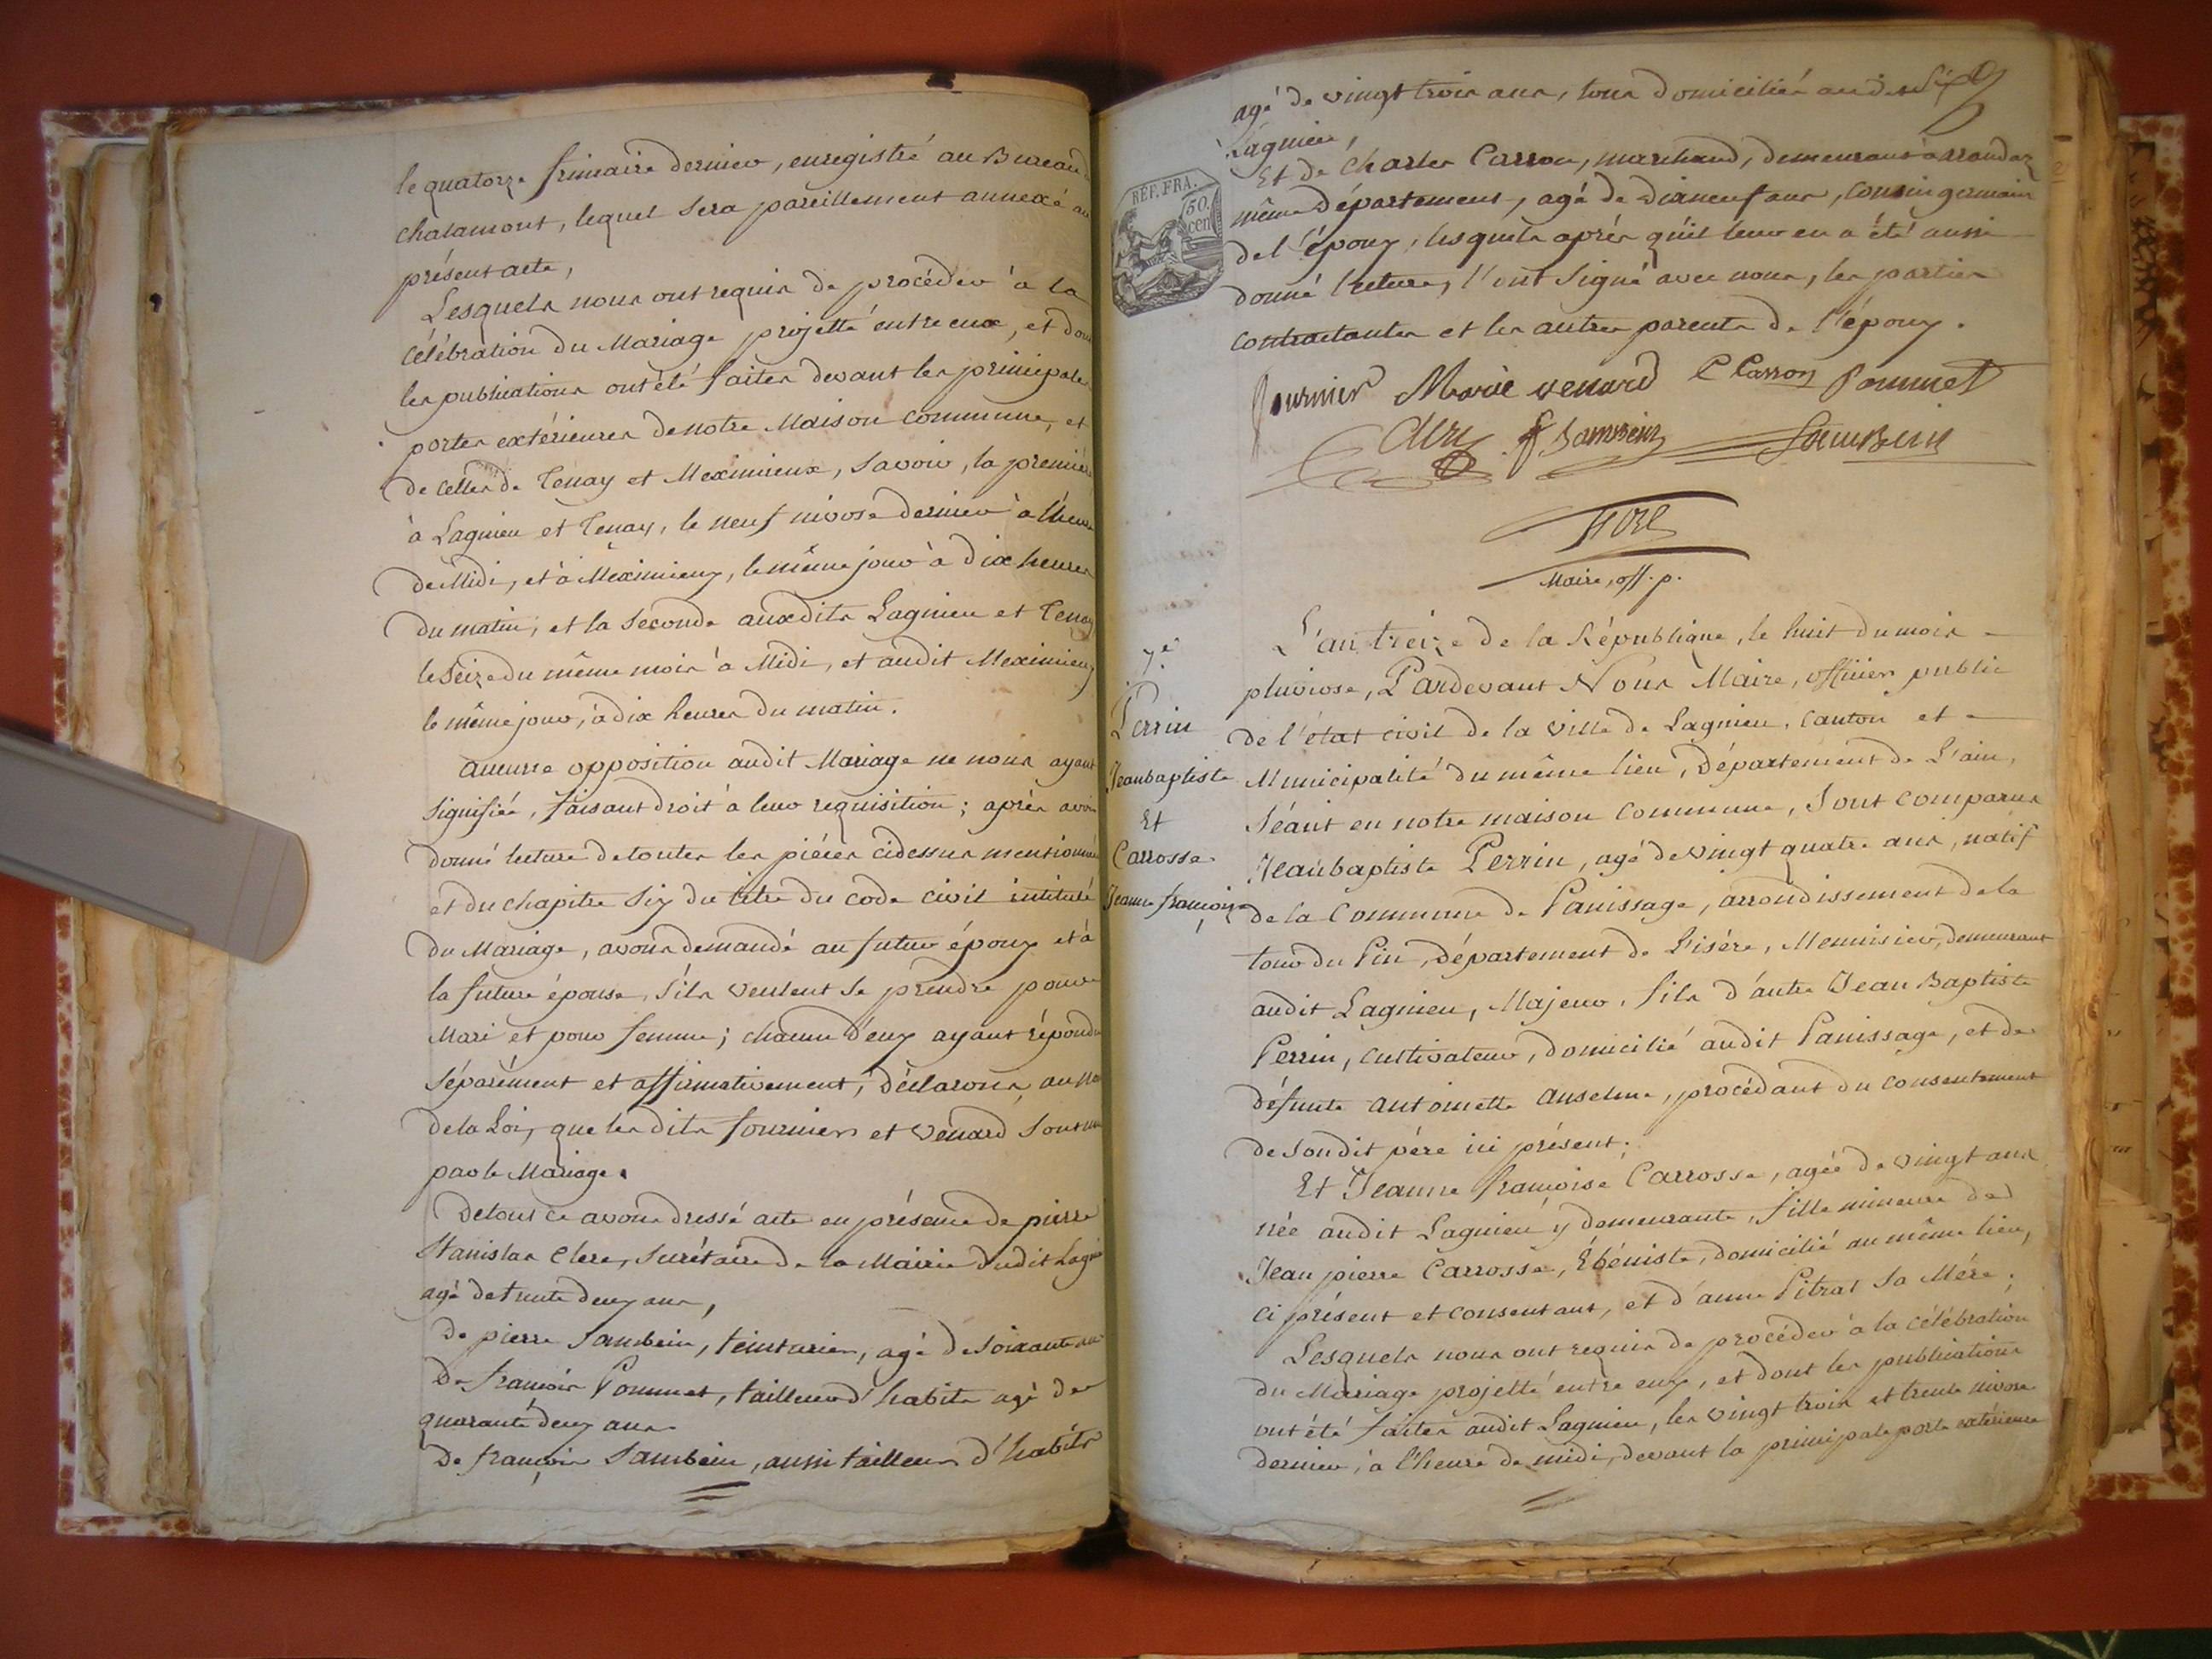 le quatorze frimaire dernier, enregistré au Bureau
chalamont, lequel sera pareillement annexé au
présent acte,
Lesquels nous ont requis de procéder à la
célébration du Mariage projetté entre eux, et dont
les publications ont été faites devant les principales
portes extérieures de notre Maison commune, et
de celles de Tenay et Meximieux, savoir, la première
à Lagnieu et Tenay, le neuf nivose dernier à l'heure
de Midi, et à Meximieux, le même jour à dix heures
du matin, et la seconde auxdits Lagnieu et Tenay
le seize du même mois à Midi, et audit Meximieux
le même jour, à dix heures du matin.
aucune opposition audit Mariage ne nous ayant
signifiée, faisant droit à leur requisition; après avoir
donné lecture de toutes les pièces cidessus mentionnées
et du chapitre six du titre du code civil intitulé
du Mariage, avons demandé au futur époux et à
la future épouse, s'ils veulent se prendre pour
Mari et pour femme; chacun d'eux ayant répondu
séparément et affirmativement, déclarons, au nom
de la Loi, que lesdits fournier et venard sont unis
par le Mariage.
De tout ce avons dressé acte en présence de pierre
Stanislas Clere, secrétaire de la Mairie dudit Lagnieu
agé de trente deux ans,
De pierre Sambein, teinturier, agé de soixante ans
De françois Pommet, tailleur d'habits agé de
quarante deux ans
De françois Sambein, aussi tailleur d'habits
agé de vingt trois ans, tous domiciliés audit
Lagnieu,
Et de Charles Carron, marchand, demeurant à
même département, agé de dixneuf ans, cousin germain
de l'époux, lesquels après qu'il leur en a été aussi
donné lecture, l'ont signé avec nous, les parties
contractantes et les autres parents de l'époux.
RÉP. FRA.
50.
cen
fournier Marie venard C Carron Pommet
f Sambein Sambein
Maire, off. p.
7e
Perrin
Jeanbaptiste
Et
Carrosse
Jeanne françoise
L'an treize de la République, le huit du mois
pluviose, Pardevant Nous Maire, officier public
de l'état civil de la ville de Lagnieu, canton et
Municipalité du même lieu, Département de L'ain,
séant en notre maison commune, sont comparus
Jeanbaptiste Perrin, agé de vingt quatre ans, natif
de la Commune de Panissage, arrondissement de la
tour du Pin, département de L'isére, Menuisier, demeurant
audit Lagnieu, Majeur, fils d'autre Jean Baptiste
Perrin, cultivateur, domicilié audit Panissage, et de
défunte antoinette anselme, procédant du consentement
de sondit pére ici présent;
Et Jeanne françoise Carrosse, agée de vingt ans
née audit Lagnieu y demeurante, fille mineure de
Jean pierre Carrosse, Ébéniste, domicilié au même lieu,
ci présent et consentant, et d'anne Pitrat sa Mére;
Lesquels nous ont requis de procéder à la célébration
du Mariage projetté entre eux, et dont les publications
ont été faites audit Lagnieu, les vingt trois et trente nivose
dernier, à l'heure de midi, devant la principale porte extérieure